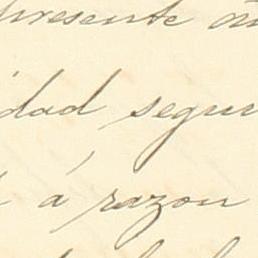 presente
dad segur
á razon